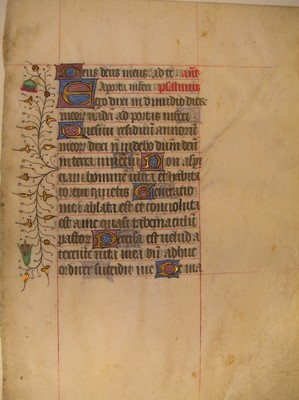 Deus deus meus ad te an̄
A porta inferi psalmus
Ego dixi in dimidio dierū
meorū vadā ad portas inferi
Quesivi residuum annorū
meorū dixi nō videbo dn̄m deū
in terra viventiū Non aspi
ciam hominē ultra et habita
torem quietis Generatio
mea ablata est et convoluta
est a me quasi tabernaculū
pastorū Precisa est velud a
texente vita mea dū adhuc
ordirer succidit me De ma